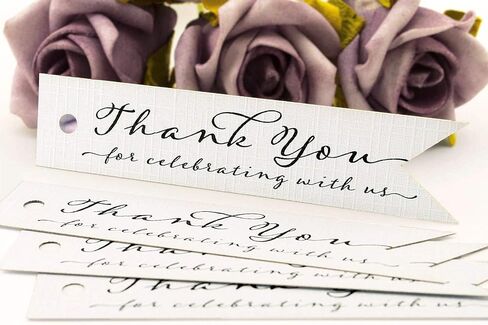 Thank You
for celebrating with us
Thank You
for celebrating with us
Thank You
for celebrating with us
Thank You
for celebrating with us